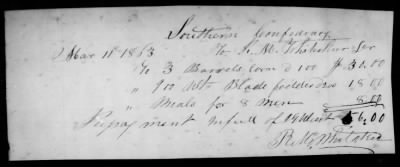 Southern Confederacy
Mar 11th 1863 To R. M. Whitaker Dr
To 3 Barrels Corn @ 10.0 $ 30.00
" 900 lbs Blade fodder 18.00
" Meals for 8 men 8.00
Repayment in full of 56.00
R. M. Whitaker